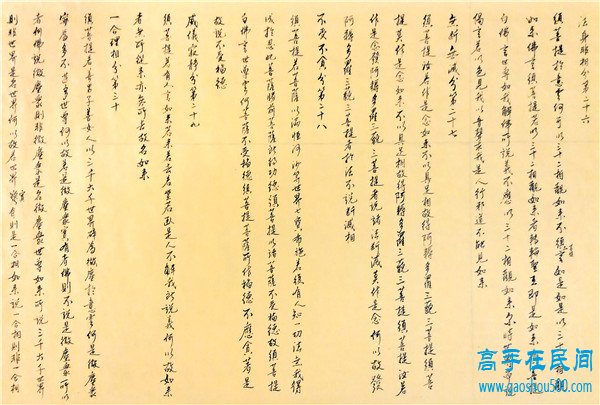 法身非相分第二十六
須菩提於意云何可以三十二相觀如來不須菩提言如是如是以三十二相觀
如來佛言須菩提若以三十二相觀如來者轉輪聖王即是如來須菩提
白佛言世尊如我解佛所說義不應以三十二相觀如來尔時世尊
偈言若以色見我以音聲求我是人行邪道不能見如來
無斷無滅分第二十七
須菩提汝若作是念如來不以具足相故得阿耨多羅三藐三菩提須菩
提莫作是念如來不以具足相故得阿耨多羅三藐三菩提須菩提汝若
作是念發阿耨多羅三藐三菩提者說諸法斷滅莫作是念何以故發
阿耨多羅三藐三菩提者於法不說斷滅相
不受不貪分第二十八
須菩提若菩薩以滿恒河沙等世界七寶布施若復有人知一切法無我得
成於忍此菩薩勝前菩薩所得功德須菩提以諸菩薩不受福德故須菩提
白佛言世尊云何菩薩不受福德須菩提菩薩所作福德不應貪著是
故說不受福德
威儀寂靜分第二十九
須菩提若有人言如來若來若去若坐若臥是人不解我所說義何以故如來
者無所從來亦無所去故名如來
一合理相分第三十
須菩提若善男子善女人以三千大千世界碎為微塵於意云何是微塵眾
寧為多不甚多世尊何以故若是微塵眾實有者佛則不說是微塵眾所以
者何佛說微塵眾則非微塵眾是名微塵眾世尊如來所說三千大千世界
則非世界是名世界何以故若世界實有則是一合相如來說一合相則非一合相
高手在民间
www.gaoshou500.com